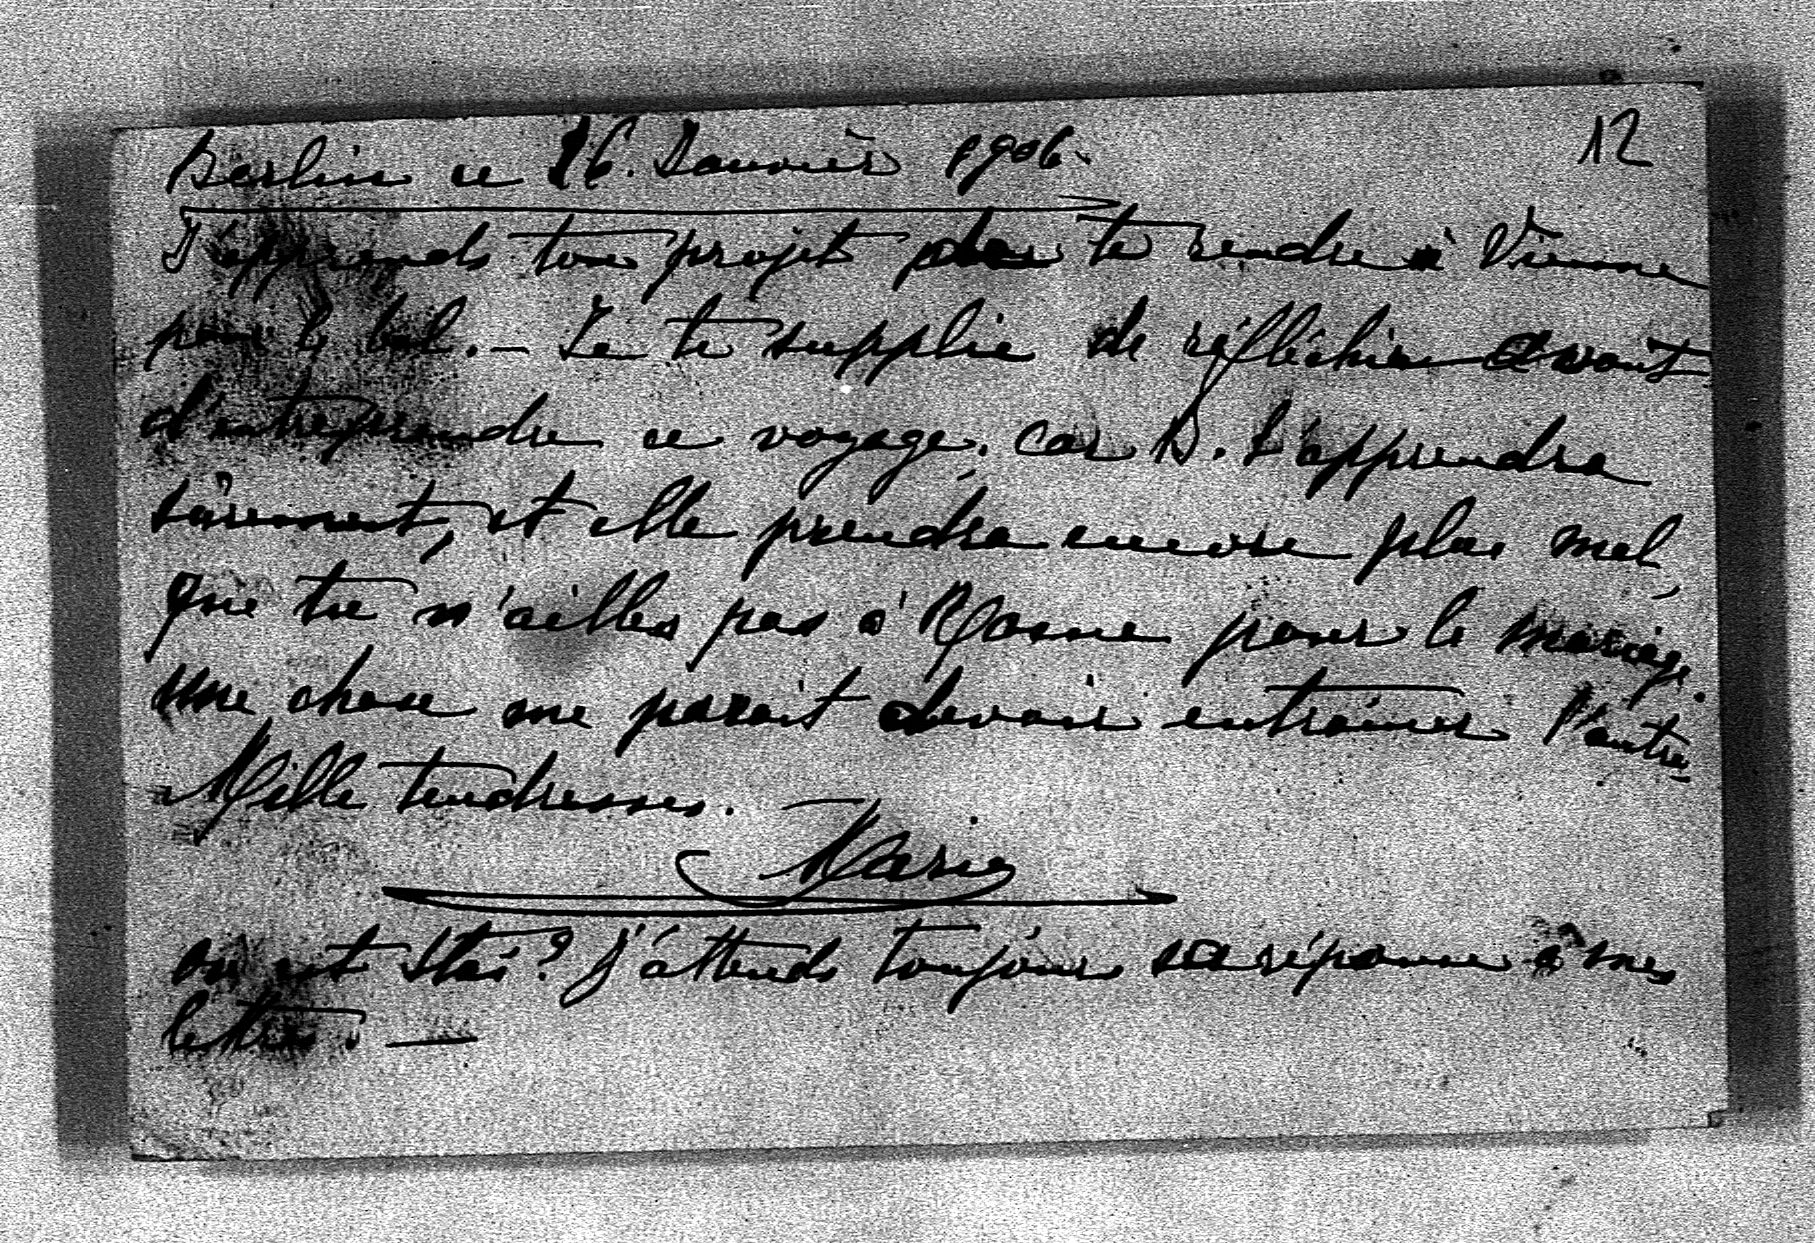 12
Berlin ce 16. Janvier 1906.
J'apprends ton projet de te rendre à Vienne
pour le bal. – Je te supplie de réfléchir avant
d'entreprendre ce voyage, car B. l'apprendra
sûrement, et elle prendra encore plus mal,
que tu n'ailles pas à Rome pour le mariage.
une chose me parait devoir entraîner l'autre
Mille tendresses.
Marie
où est Stas? j'attends toujours sa réponse à mes
lettres. —